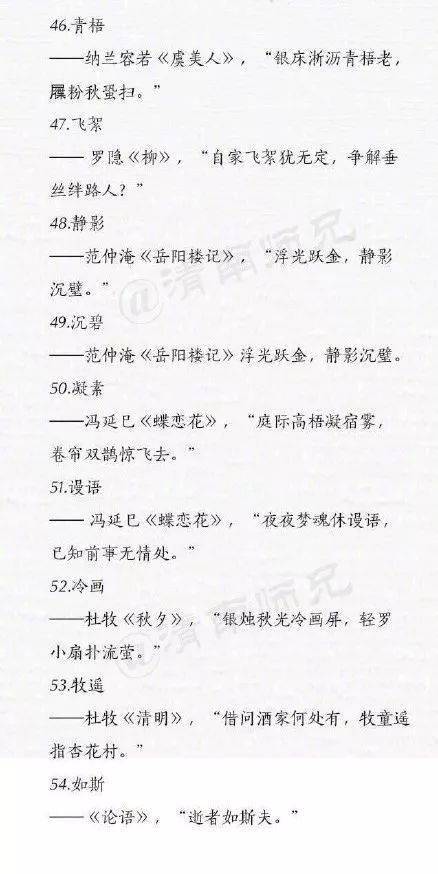 46.青梧
——纳兰容若《虞美人》，“银床淅沥青梧老，
屧粉秋蛩扫。”
47.飞絮
—— 罗隐《柳》，“自家飞絮犹无定，争解垂
丝绊路人？”
48.静影
——范仲淹《岳阳楼记》，“浮光跃金，静影
沉璧。”
49.沉碧
——范仲淹《岳阳楼记》浮光跃金，静影沉璧。
50.凝素
——冯延巳《蝶恋花》，“庭际高梧凝宿雾，
卷帘双鹊惊飞去。”
51.谩语
—— 冯延巳《蝶恋花》，“夜夜梦魂休谩语，
已知前事无情处。”
52.冷画
——杜牧《秋夕》，“银烛秋光冷画屏，轻罗
小扇扑流萤。”
53.牧遥
——杜牧《清明》，“借问酒家何处有，牧童遥
指杏花村。”
54.如斯
——《论语》，“逝者如斯夫。”
@清南师兄
@清南师兄